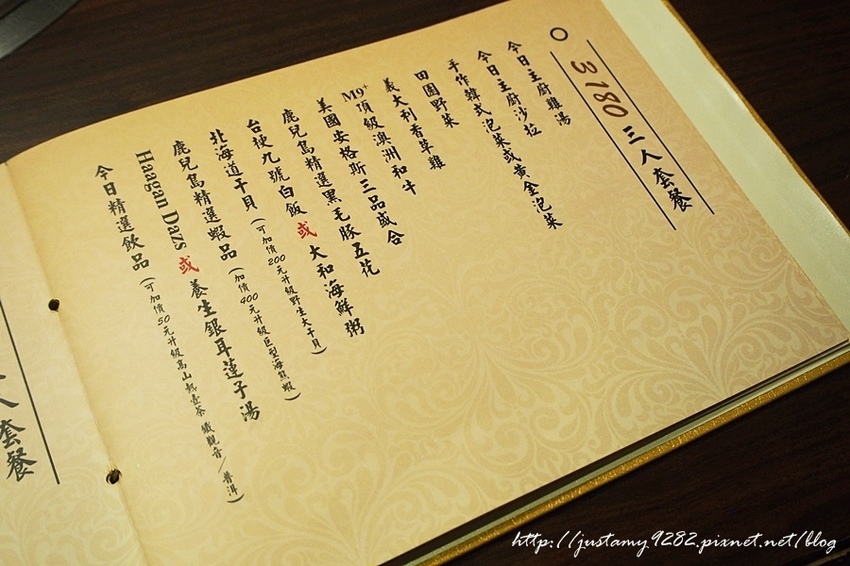 3780 三人套餐
今日主廚雞湯
今日主廚沙拉
手作韓式泡菜或黃金泡菜
田園野菜
義大利香草雞
M9+頂級澳洲和牛
美國安格斯三品或合
鹿兒島精選黑毛豚五花
台梗九號白飯 或 大和海鮮粥
北海道干貝 (可加價200元升級野生大干貝)
鹿兒島精選蝦品 (加價400元升級巨型海熊蝦)
Haagan Dazs 或 養生銀耳蓮子湯
今日精選飲品 (可加價50元升級高山熱壺茶 鐵觀音/普洱)
人套餐
http://justamy9282.pixnet.net/blog